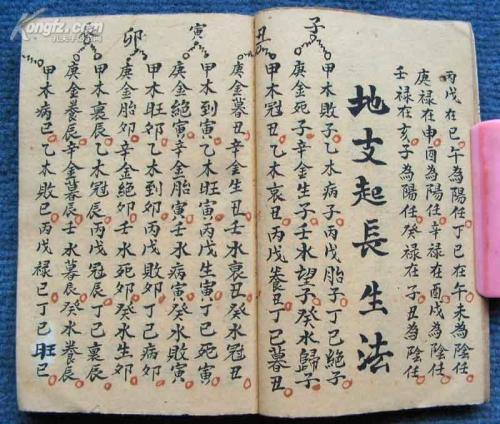 丙戊在巳午為陽任丁巳在午未為陰任
庚祿在申酉為陽任辛祿在酉戌為陰任
壬祿在亥子為陽任癸祿在子丑為陰任
地支起長生法
子
甲木敗子乙木病子丙戊胎子丁巳絕子
庚金死子辛金生子壬水望子癸水歸子
丑
甲木冠丑乙木衰丑丙戊養丑丁巳墓丑
庚金墓丑辛金生丑壬水衰丑癸水冠丑
寅
甲木到寅乙木旺寅丙戊生寅丁巳死寅
庚金絕寅辛金胎寅壬水病寅癸水敗寅
卯
甲木旺卯乙木到卯丙戊敗卯丁巳病卯
庚金胎卯辛金絕卯壬水死卯癸水生卯
甲木裏辰乙木冠辰丙戊冠辰丁巳裏辰
庚金養辰辛金墓辰壬水墓辰癸水養辰
甲木病巳乙木敗巳丙戊祿巳丁巳旺巳